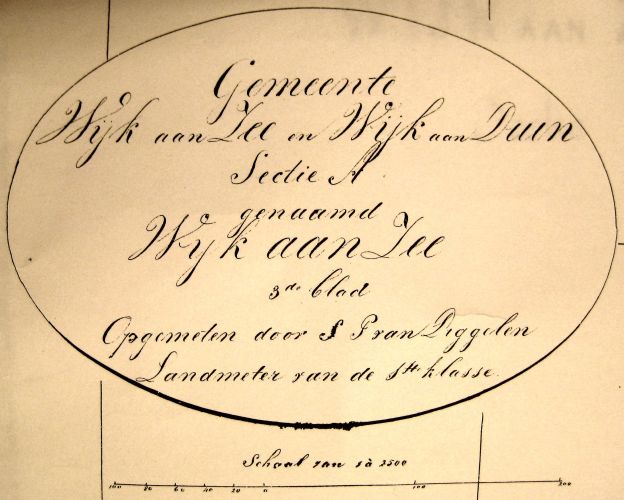 Gemeente
Wijk aan Zee en Wijk aan Duin
Sectie A
genaamd
Wijk aan Zee
3de blad
Opgemeten door S P van Diggelen
Landmeter van de 1ste klasse.
Schaal van 1 à 2500
100 80 60 40 20 0 100 200